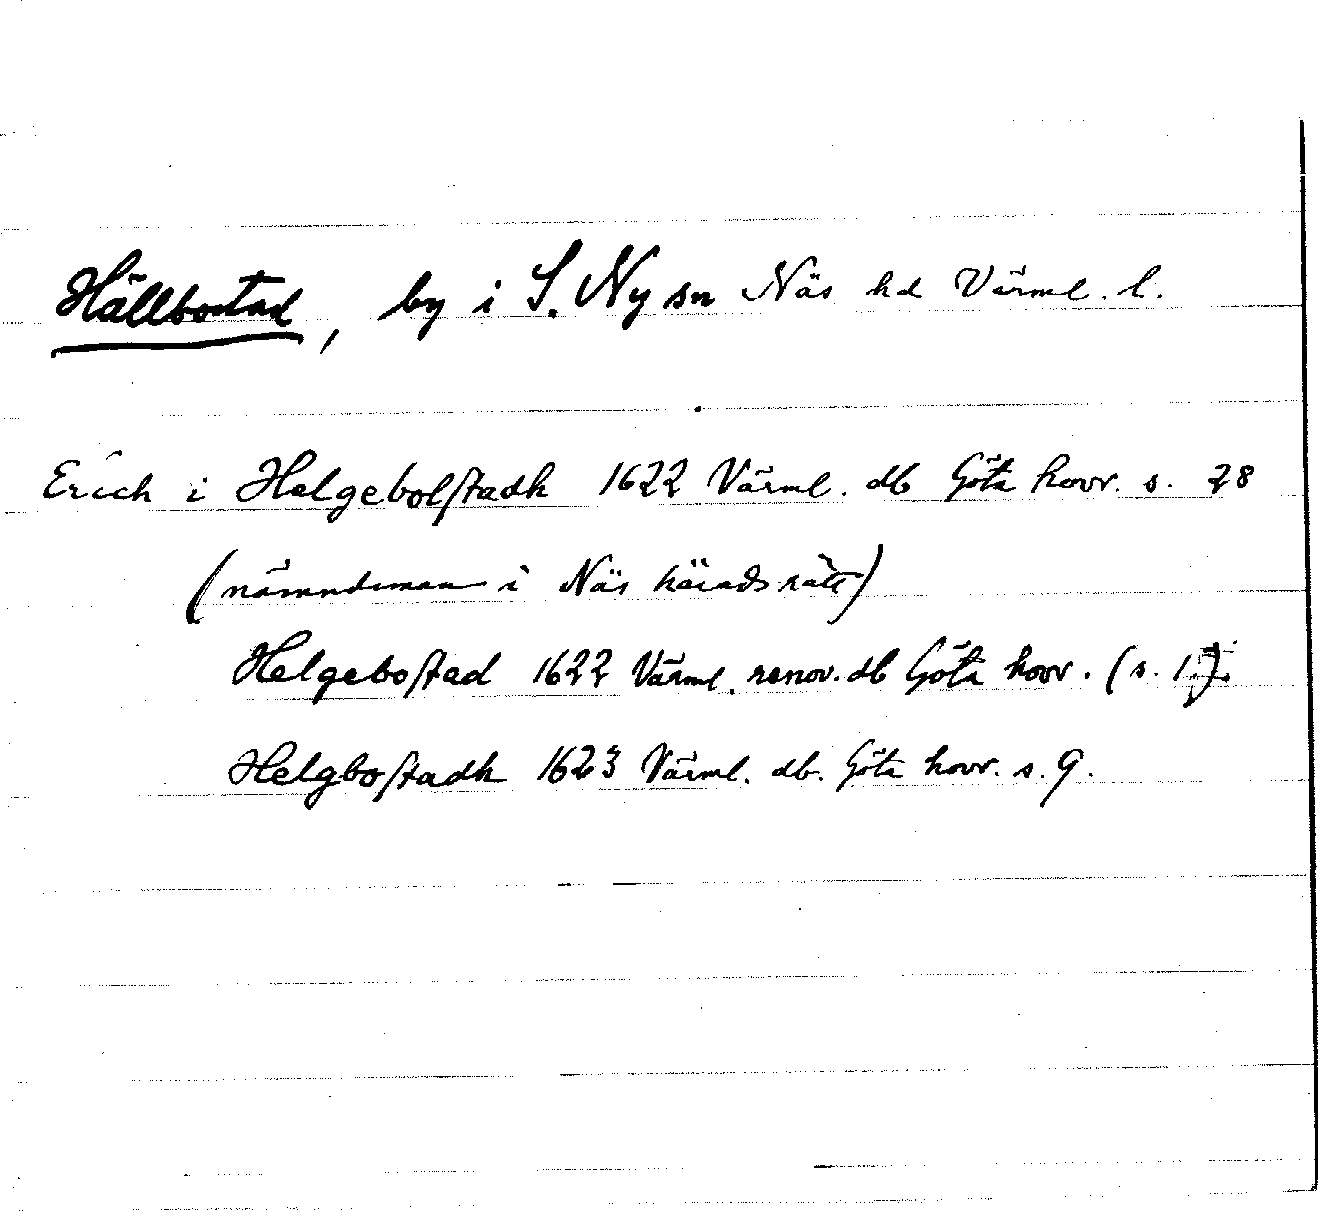 Hällbostad, by i S. Ny sn Näs hd Värml. l.
Erich i Helgebolstadh 1622 Värml. db Göta hovr. s. 28
(nämndeman i Näs häradsrätt)
Helgebostad 1622 Värml. renov. db Göta hovr. (s. 1).
Helgbostadh 1623 Värml. db. Göta hovr. s. 9.